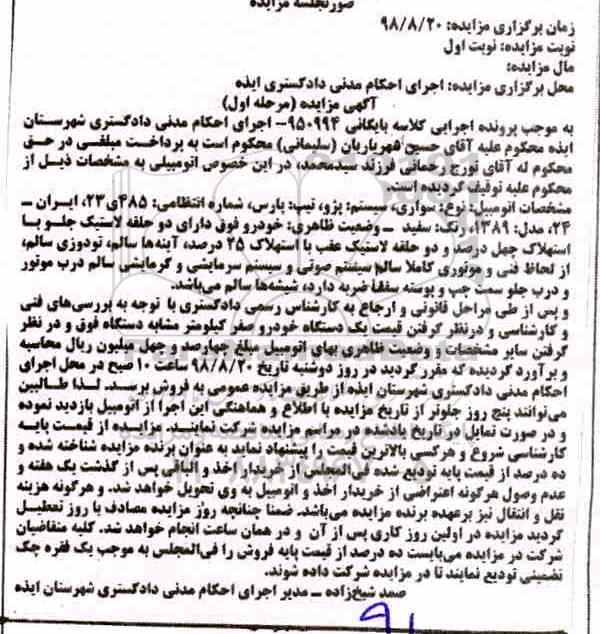 صورتجلسه مزایده
زمان برگزاری مزایده: ۹۸/۸/۲۰
نوبت مزایده: نوبت اول
مال مزایده:
محل برگزاری مزایده: اجرای احکام مدنی دادگستری ایذه
آگهی مزایده (مرحله اول)
به موجب پرونده اجرایی کلاسه بایگانی ۹۵۰۹۹۴- اجرای احکام مدنی دادگستری شهرستان
ایذه محکوم علیه آقای حسین شهریاریان (سلیمانی) محکوم است به پرداخت مبلغی در حق
محکوم له آقای تورج رحمانی فرزند سیدمحمد، در این خصوص اتومبیلی به مشخصات ذیل از
محکوم علیه توقیف گردیده است.
مشخصات اتومبیل: نوع: سواری، سیستم: پژو، تیپ: پارس، شماره انتظامی: ۴۸۵ی۲۳، ایران ـ
۲۴، مدل: ۱۳۸۹، رنگ: سفید ـ وضعیت ظاهری: خودرو فوق دارای دو حلقه لاستیک جلو با
استهلاک چهل درصد و دو حلقه لاستیک عقب با استهلاک ۲۵ درصد، آینه‌ها سالم، تودوزی سالم،
از لحاظ فنی و موتوری کاملا سالم سیستم صوتی و سیستم سرمایشی و گرمایشی سالم درب موتور
و درب جلو سمت چپ و پوسته سقف ضربه دارد، شیشه‌ها سالم می‌باشد.
و پس از طی مراحل قانونی و ارجاع به کارشناس رسمی دادگستری با توجه به بررسی‌های فنی
و کارشناسی و درنظر گرفتن قیمت یک دستگاه خودرو صفر کیلومتر مشابه دستگاه فوق و در نظر
گرفتن سایر مشخصات و وضعیت ظاهری بهای اتومبیل مبلغ چهارصد و چهل میلیون ریال محاسبه
و برآورد گردیده که مقرر گردید در روز دوشنبه تاریخ ۹۸/۸/۲۰ ساعت ۱۰ صبح در محل اجرای
احکام مدنی دادگستری شهرستان ایذه از طریق مزایده عمومی به فروش برسد. لذا طالبین
می‌توانند پنج روز جلوتر از تاریخ مزایده با اطلاع و هماهنگی این اجرا از اتومبیل بازدید نموده
و در صورت تمایل در تاریخ یادشده در مراسم مزایده شرکت نمایند. مزایده از قیمت پایه
کارشناسی شروع و هرکسی بالاترین قیمت را پیشنهاد نماید به عنوان برنده مزایده شناخته شده و
ده درصد از قیمت پایه تودیع شده فی‌المجلس از خریدار اخذ و الباقی پس از گذشت یک هفته و
عدم وصول هرگونه اعتراضی از خریدار اخذ و اتومبیل به وی تحویل خواهد شد. و هرگونه هزینه
نقل و انتقال نیز برعهده برنده مزایده می‌باشد. ضمنا چنانچه روز مزایده مصادف با روز تعطیل
گردید مزایده در اولین روز کاری پس از آن و در همان ساعت انجام خواهد شد. کلیه متقاضیان
شرکت در مزایده می‌بایست ده درصد از قیمت پایه فروش را فی‌المجلس به موجب یک فقره چک
تضمینی تودیع نمایند تا در مزایده شرکت داده شوند.
صمد شیخ‌زاده ـ مدیر اجرای احکام مدنی دادگستری شهرستان ایذه
۹۱